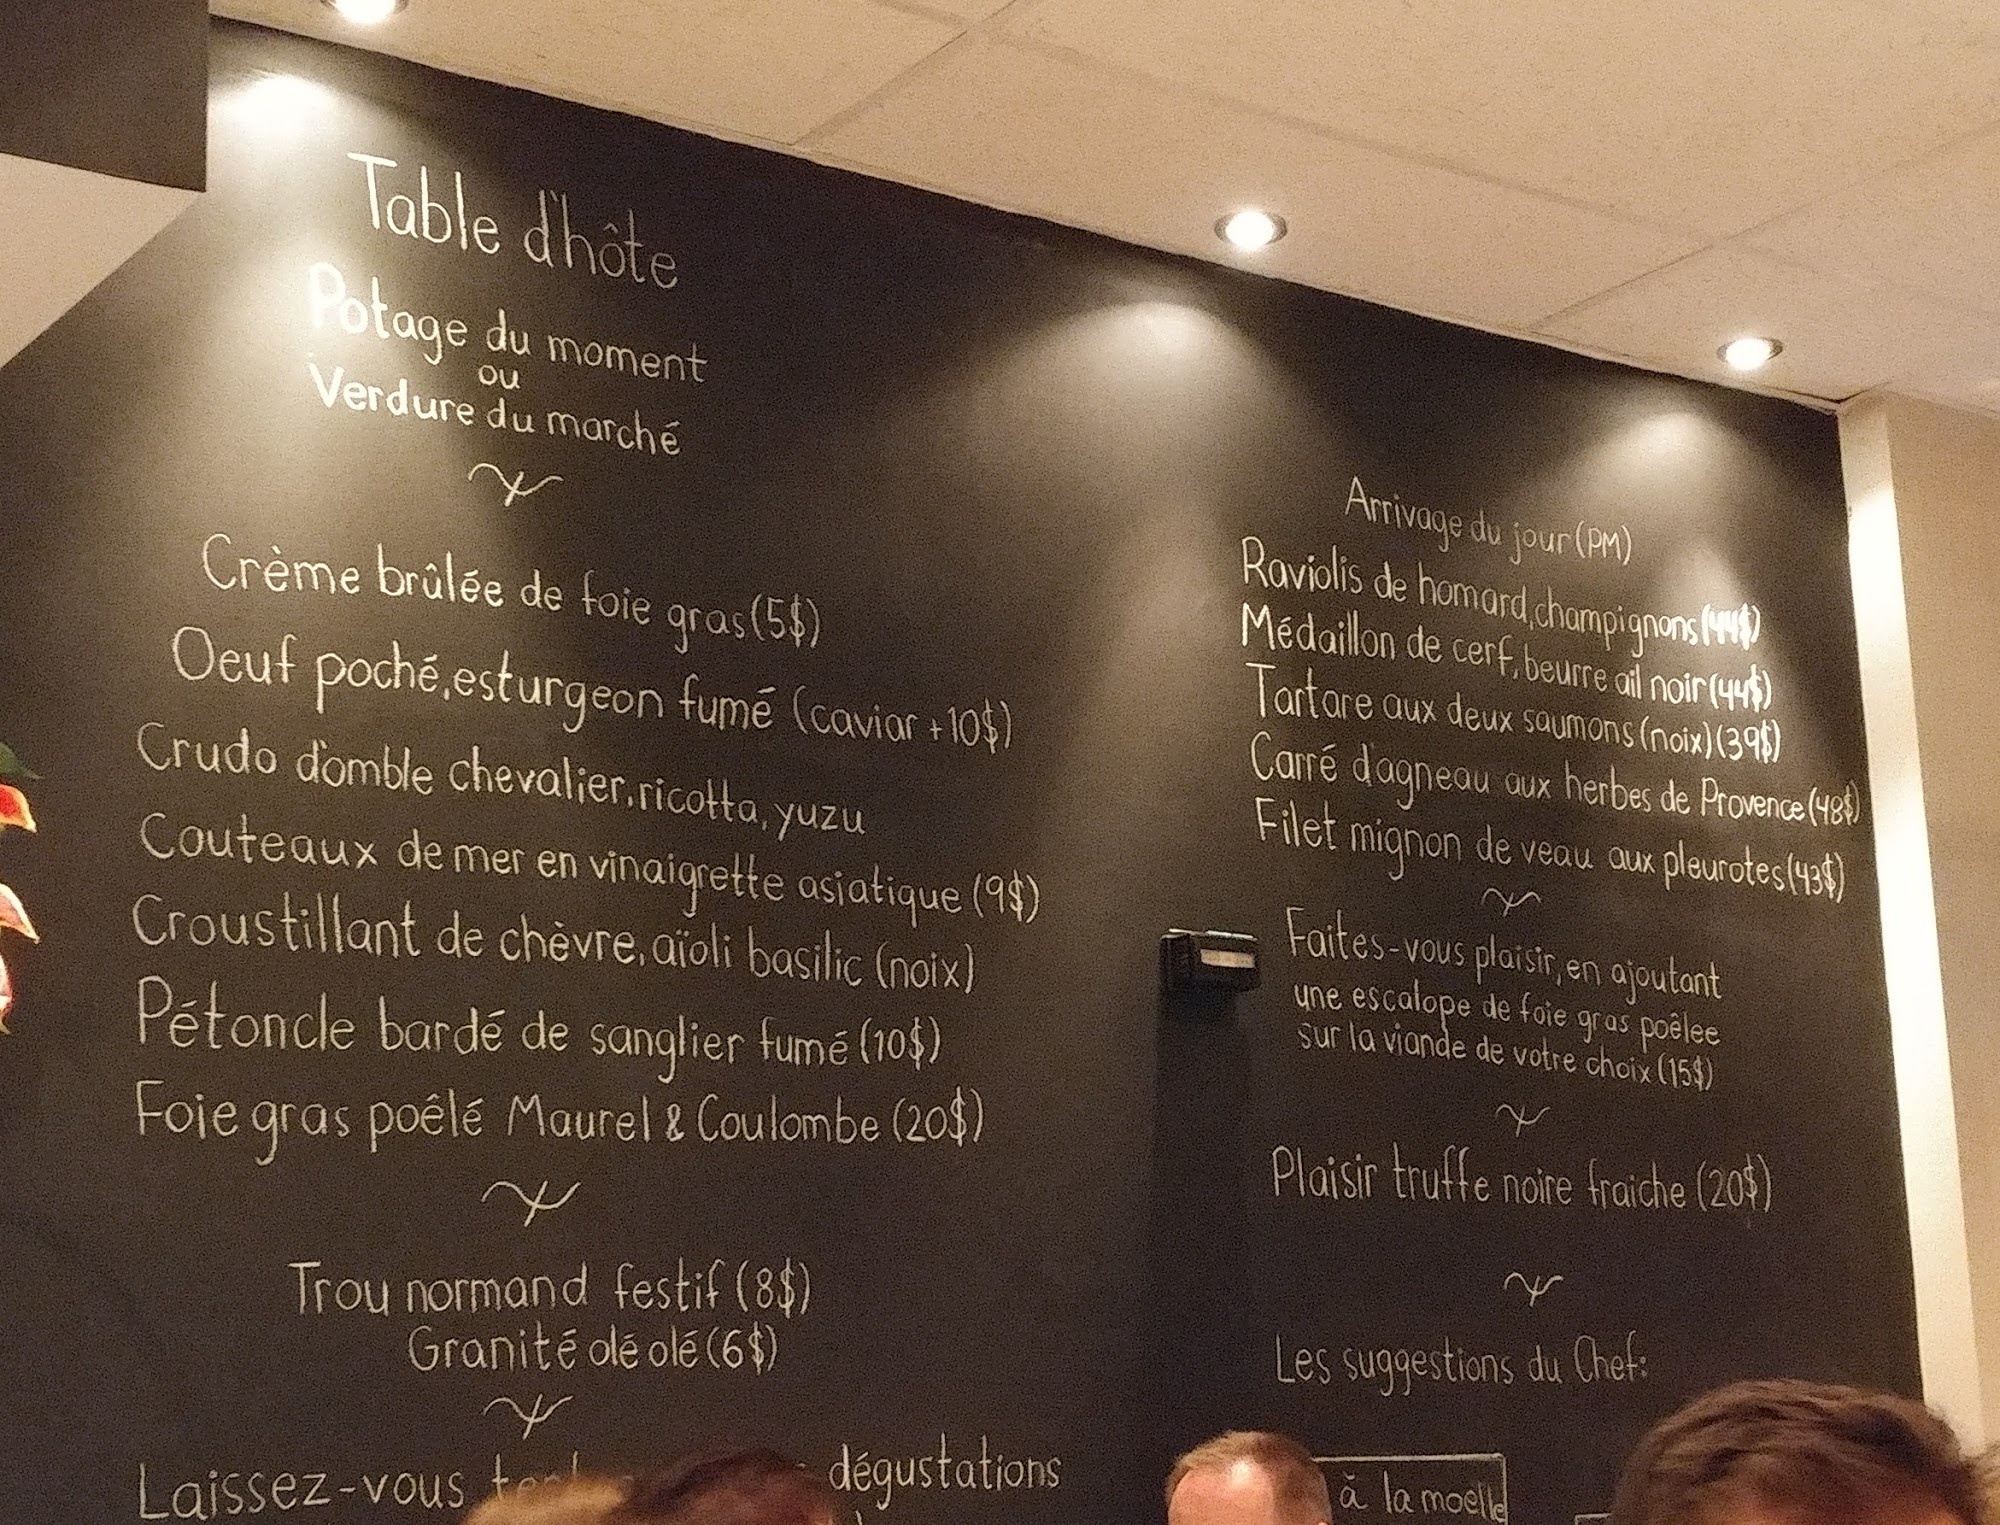 Table d'hôte
Potage du moment
ou
Verdure du marché
Crème brûlée de foie gras (5$)
Oeuf poché, esturgeon fumé (caviar +10$)
Crudo d'omble chevalier, ricotta, yuzu
Couteaux de mer en vinaigrette asiatique (9$)
Croustillant de chèvre, aïoli basilic (noix)
Pétoncle bardé de sanglier fumé (10$)
Foie gras poêlé Maurel & Coulombe (20$)
Trou normand festif (8$)
Granité olé olé (6$)
Laissez-vous dégustations
Arrivage du jour (PM)
Raviolis de homard, champignons (44$)
Médaillon de cerf, beurre ail noir (44$)
Tartare aux deux saumons (noix) (39$)
Carré d'agneau aux herbes de Provence (48$)
Filet mignon de veau aux pleurotes (43$)
Faites-vous plaisir, en ajoutant
une escalope de foie gras poêlee
sur la viande de votre choix (15$)
Plaisir truffe noire fraiche (20$)
Les suggestions du Chef:
à la moelle